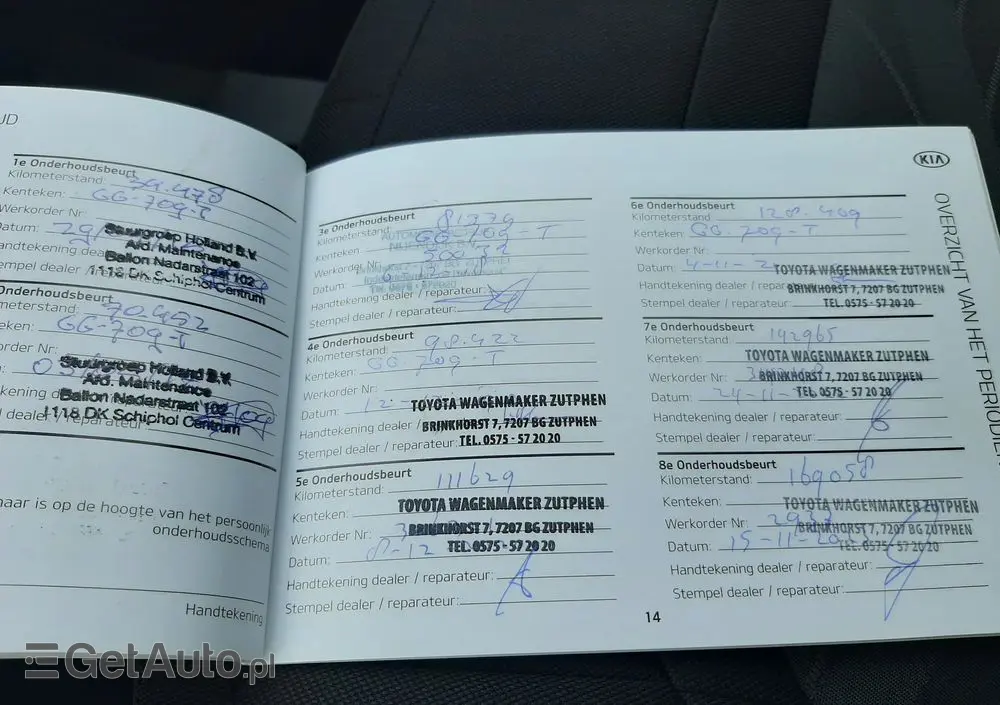 UD
1e Onderhoudsbeurt
Kilometerstand: 39.478
Kenteken: GG-709-T
Werkorder Nr:
Datum: 29
Handtekening dea
empel dealer /
Stuurgroep Holland B.V.
Afd. Maintenance
Ballon Nadarstraat 102
1118 DK Schiphol Centrum
Onderhoudsbeurt
ometerstand: 70.452
teken: GG-709-T
order Nr:
kening d
l dealer / reparateur:
Stuurgroep Holland B.V.
Afd. Maintenance
Ballon Nadarstraat 102
1118 DK Schiphol Centrum
naar is op de hoogte van het persoonlijk
onderhoudsschema
Handtekening
3e Onderhoudsbeurt
Kilometerstand: 81379
Kenteken: GG-709-T
Werkorder Nr:
Datum:
Handtekening dealer / reparateur:
Stempel dealer / reparateur:
4e Onderhoudsbeurt
Kilometerstand: 98.422
Kenteken: GG 709-T
Werkorder Nr:
Datum: 12-
Handtekening dealer /
Stempel dealer / reparateur:
TOYOTA WAGENMAKER ZUTPHEN
BRINKHORST 7, 7207 BG ZUTPHEN
TEL. 0575 - 57 20 20
5e Onderhoudsbeurt
Kilometerstand: 111629
Kenteken:
Werkorder Nr: 3
Datum: 8-12
Handtekening dealer / reparateur:
Stempel dealer / reparateur:
TOYOTA WAGENMAKER ZUTPHEN
BRINKHORST 7, 7207 BG ZUTPHEN
TEL. 0575 - 57 20 20
KIA
6e Onderhoudsbeurt
Kilometerstand 128.409
Kenteken: GG.709-T
Werkorder Nr:
Datum: 4-11-2
Handtekening dealer / repar
Stempel dealer / reparateur:
TOYOTA WAGENMAKER ZUTPHEN
BRINKHORST 7, 7207 BG ZUTPHEN
TEL. 0575 - 57 20 20
7e Onderhoudsbeurt
Kilometerstand: 142965
Kenteken:
Werkorder Nr: 3
Datum: 24-11-
Handtekening dealer / reparateur:
Stempel dealer / reparateur:
TOYOTA WAGENMAKER ZUTPHEN
BRINKHORST 7, 7207 BG ZUTPHEN
TEL. 0575 - 57 20 20
8e Onderhoudsbeurt
Kilometerstand: 169058
Kenteken:
Werkorder Nr: 293
Datum: 15-11-20
Handtekening dealer / reparateur:
Stempel dealer / reparateur:
TOYOTA WAGENMAKER ZUTPHEN
BRINKHORST 7, 7207 BG ZUTPHEN
TEL. 0575 - 57 20 20
OVERZICHT VAN HET PERIODIE
14
GetAuto.pl